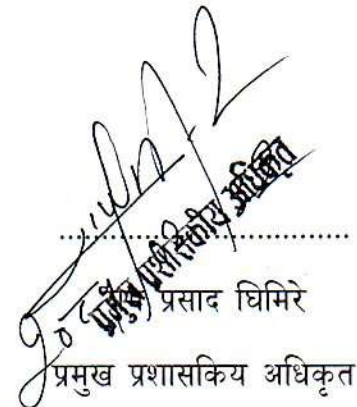 प्रमुख प्रशासकिय अधिकृत
....................................
प्रसाद घिमिरे
प्रमुख प्रशासकिय अधिकृत